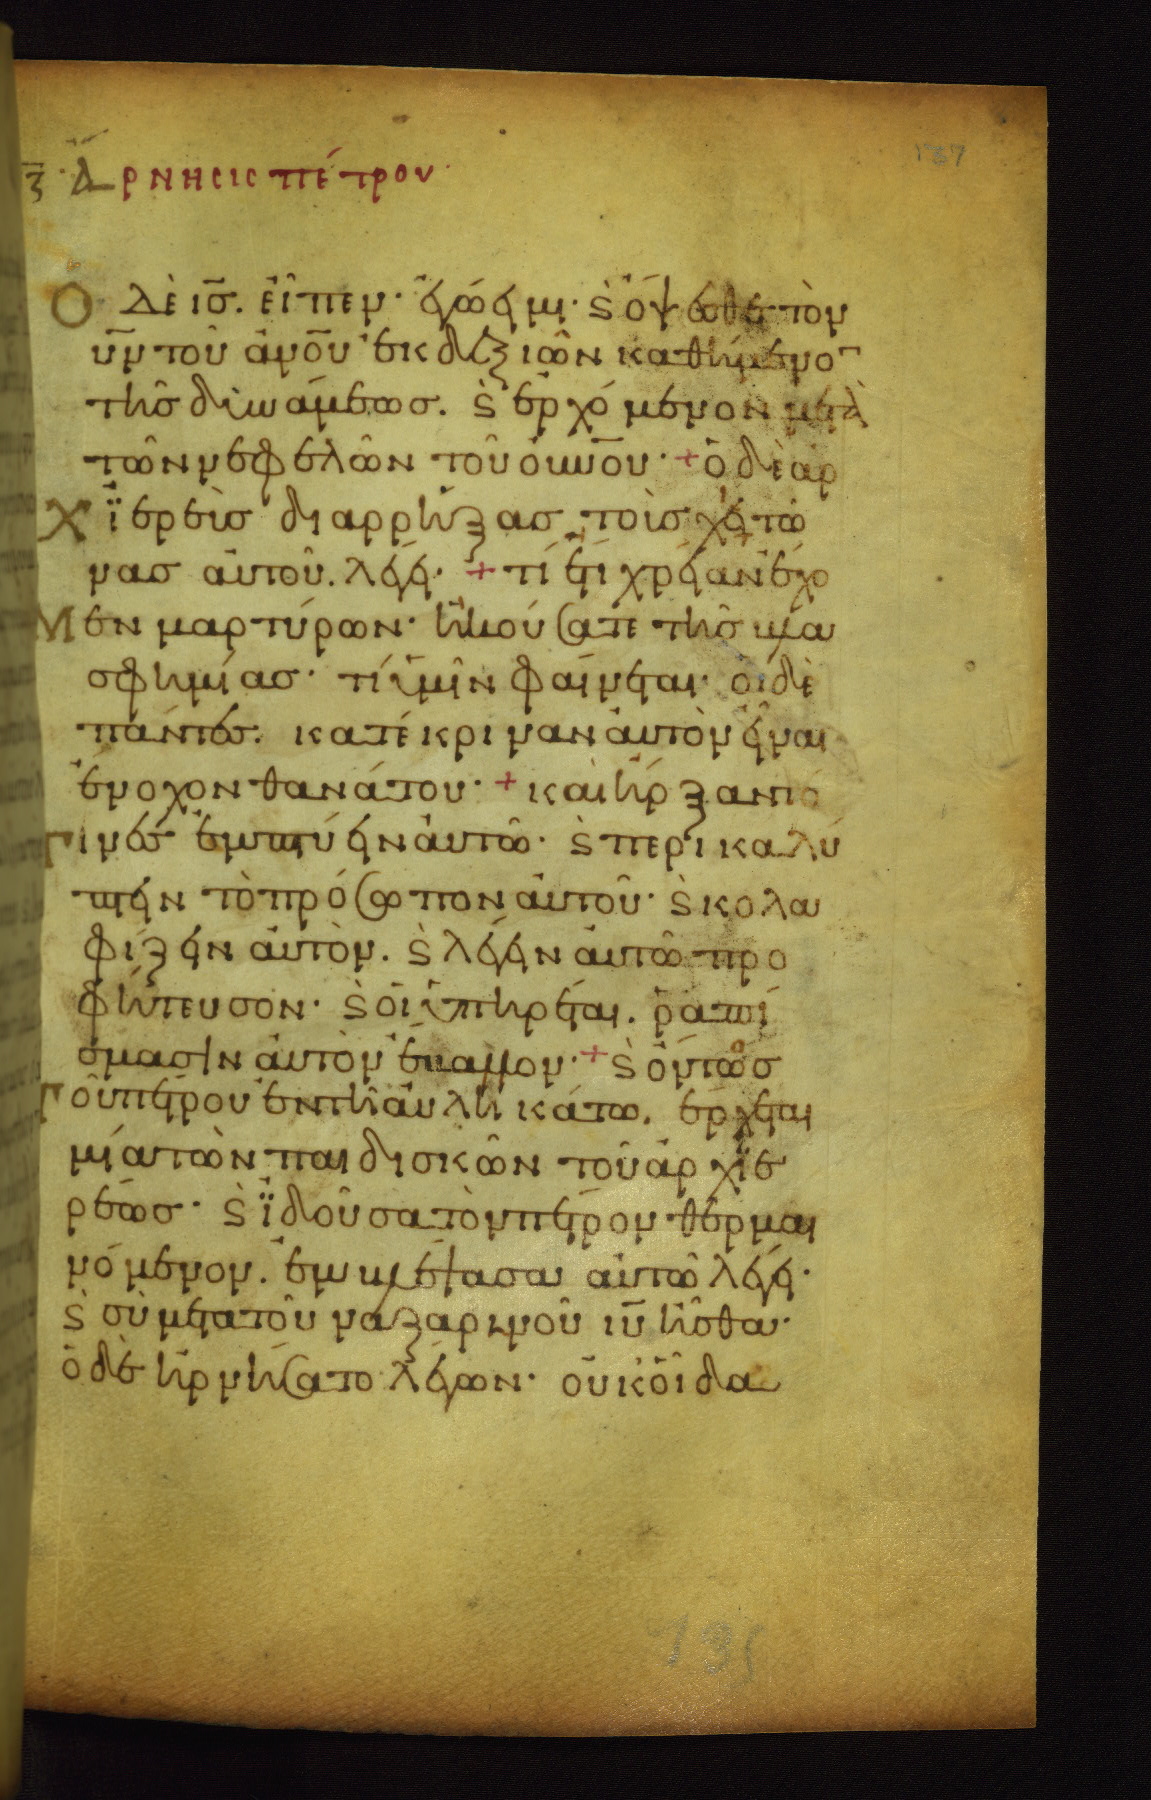 ξ Ἄρνησις πέτρου
137
Ὁ δὲ ις̄. εἶπεν· ἐγώ εἰμι· ϛ ὄψεσθε τὸν
υ̅ν τοῦ ἀνο̅υ ἐκ δεξιῶν καθήμενο
τῆς δυνάμεως. ϛ ἐρχόμενον μετὰ
τῶν νεφελῶν τοῦ οὐνο̅υ· + ὁ δὲ ἀρ
χϊερεὺς διαρρήξας τοὺς χιτῶ
νας αὐτοῦ. λέγει· + τί ἔτι χρείαν ἔχο
μεν μαρτύρων· ἠκούσατε τῆς βλα
σφημίας· τί ὑμῖν φαίνεται· οἱ δὲ
πάντες. κατέκριναν αὐτὸν εἶναι
ἔνοχον θανάτου· + καὶ ἤρξαντό
τινές ἐμπτύειν αὐτῶ· ϛ περικαλύ
πτειν τὸ πρόσωπον αὐτοῦ· ϛ κολα
φίζειν αὐτὸν. ϛ λέγειν αὐτῶ προ
φήτευσον· ϛ οἱ ὑπηρέται. ῥαπί
σμασιν αὐτὸν ἔβαλλον· + ϛ ὄντος
τοῦ πέτρου ἐν τῆ αὐλῆ κάτω. ἔρχεται
μία τῶν παιδισκῶν τοῦ ἀρχϊε
ρέως· ϛ ἰδοῦσα τὸν πέτρον θερμαι
νόμενον. ἐμβλέψασα αὐτῶ λέγει·
ϛ σὺ μετὰ τοῦ ναζαρινοῦ ιυ̅ ἦσθα·
ὁ δὲ ἠρνήσατο λέγων· οὐκ οἶδα
135